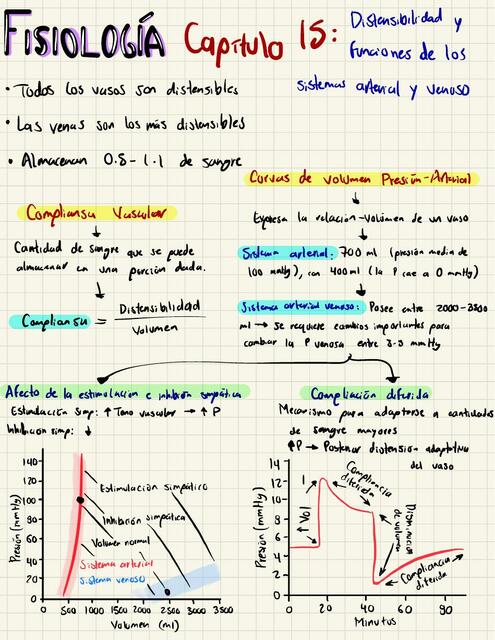 FISIOLOGÍA Capítulo 15:
Distensibilidad y
funciones de los
sistemas arterial y venoso
• Todos los vasos son distensibles
• Las venas son los más distensibles
• Almacenan 0.8-1.1 de sangre
Compliansa Vascular
Cantidad de sangre que se puede
almacenar en una porción dada.
Compliansa = Distensibilidad
Volumen
Curvas de volumen Presión-Arterial
Expresa la relación-volúmen de un vaso
Sistema arterial: 700 ml (presión media de
100 mmHg), con 400ml (la P cae a 0 mmHg)
Sistema arterial venoso: Posee entre 2000-3500
ml → Se requiere cambios importantes para
cambiar la P venosa entre 3-5 mmHg
Afecto de la estimulación e inhibición simpática
Estimulación simp: ↑ Tono vascular → ↑ P
Inhibición simp: ↓
Presión (mmHg)
140
120
100
80
60
40
20
0
Estimulación simpático
Inhibición simpática
Volumen normal
Sistema arterial
Sistema venoso
0 500 1000 1500 2000 2500 3000 3500
Volumen (ml)
Compliación diferida
Mecanismo para adaptarse a cantidades
de sangre mayores
↑P → Posterior distensión adaptativa
del vaso
Presión (mmHg)
14
12
10
8
6
4
2
0
↑ Vol
Compliancia
diferida
Disminución
de volumen
Compliancia
diferida
0 20 40 60 80
Minutos